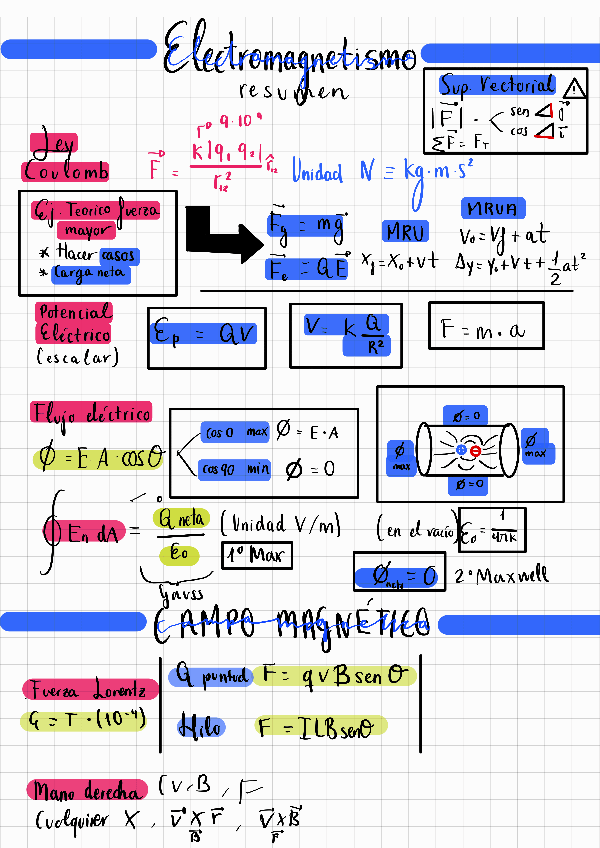 Electromagnetismo
resumen
Sup. Vectorial
|F| · < sen g
cos i
ΣF = F_T
Ley
Coulomb
9·10⁹
F = K|q₁ q₂| / r₁₂² r̂₁₂
Unidad N ≡ kg·m·s²
Ej. Teorico fuerza
mayor
* Hacer casos
* Carga neta
F_g = mg
F_e = QE
MRU
X_f = X₀ + vt
MRUA
V₀ = Vf + at
Δy = Y₀ + Vt + 1/2 at²
Potencial
Eléctrico
(escalar)
Ep = QV
V = K Q/R²
F = m · a
Flujo eléctrico
Ø = E A · cos Θ
cos 0 max Ø = E · A
cos 90 min Ø = 0
Ø = 0
Ø max
Ø max
Ø = 0
∮ En dA = Q neta / ε₀ (Unidad V/m)
1º Max
Gauss
(en el vacío) ε₀ = 1/4πK
Ø neta = 0 2º Maxwell
CAMPO MAGNÉTICO
Fuerza Lorentz
G = T · (10⁻⁴)
Q puntual F = q v B sen Θ
Hilo F = I L B senΘ
Mano derecha (v, B, F
Cualquier X, v X r, v X B
B F